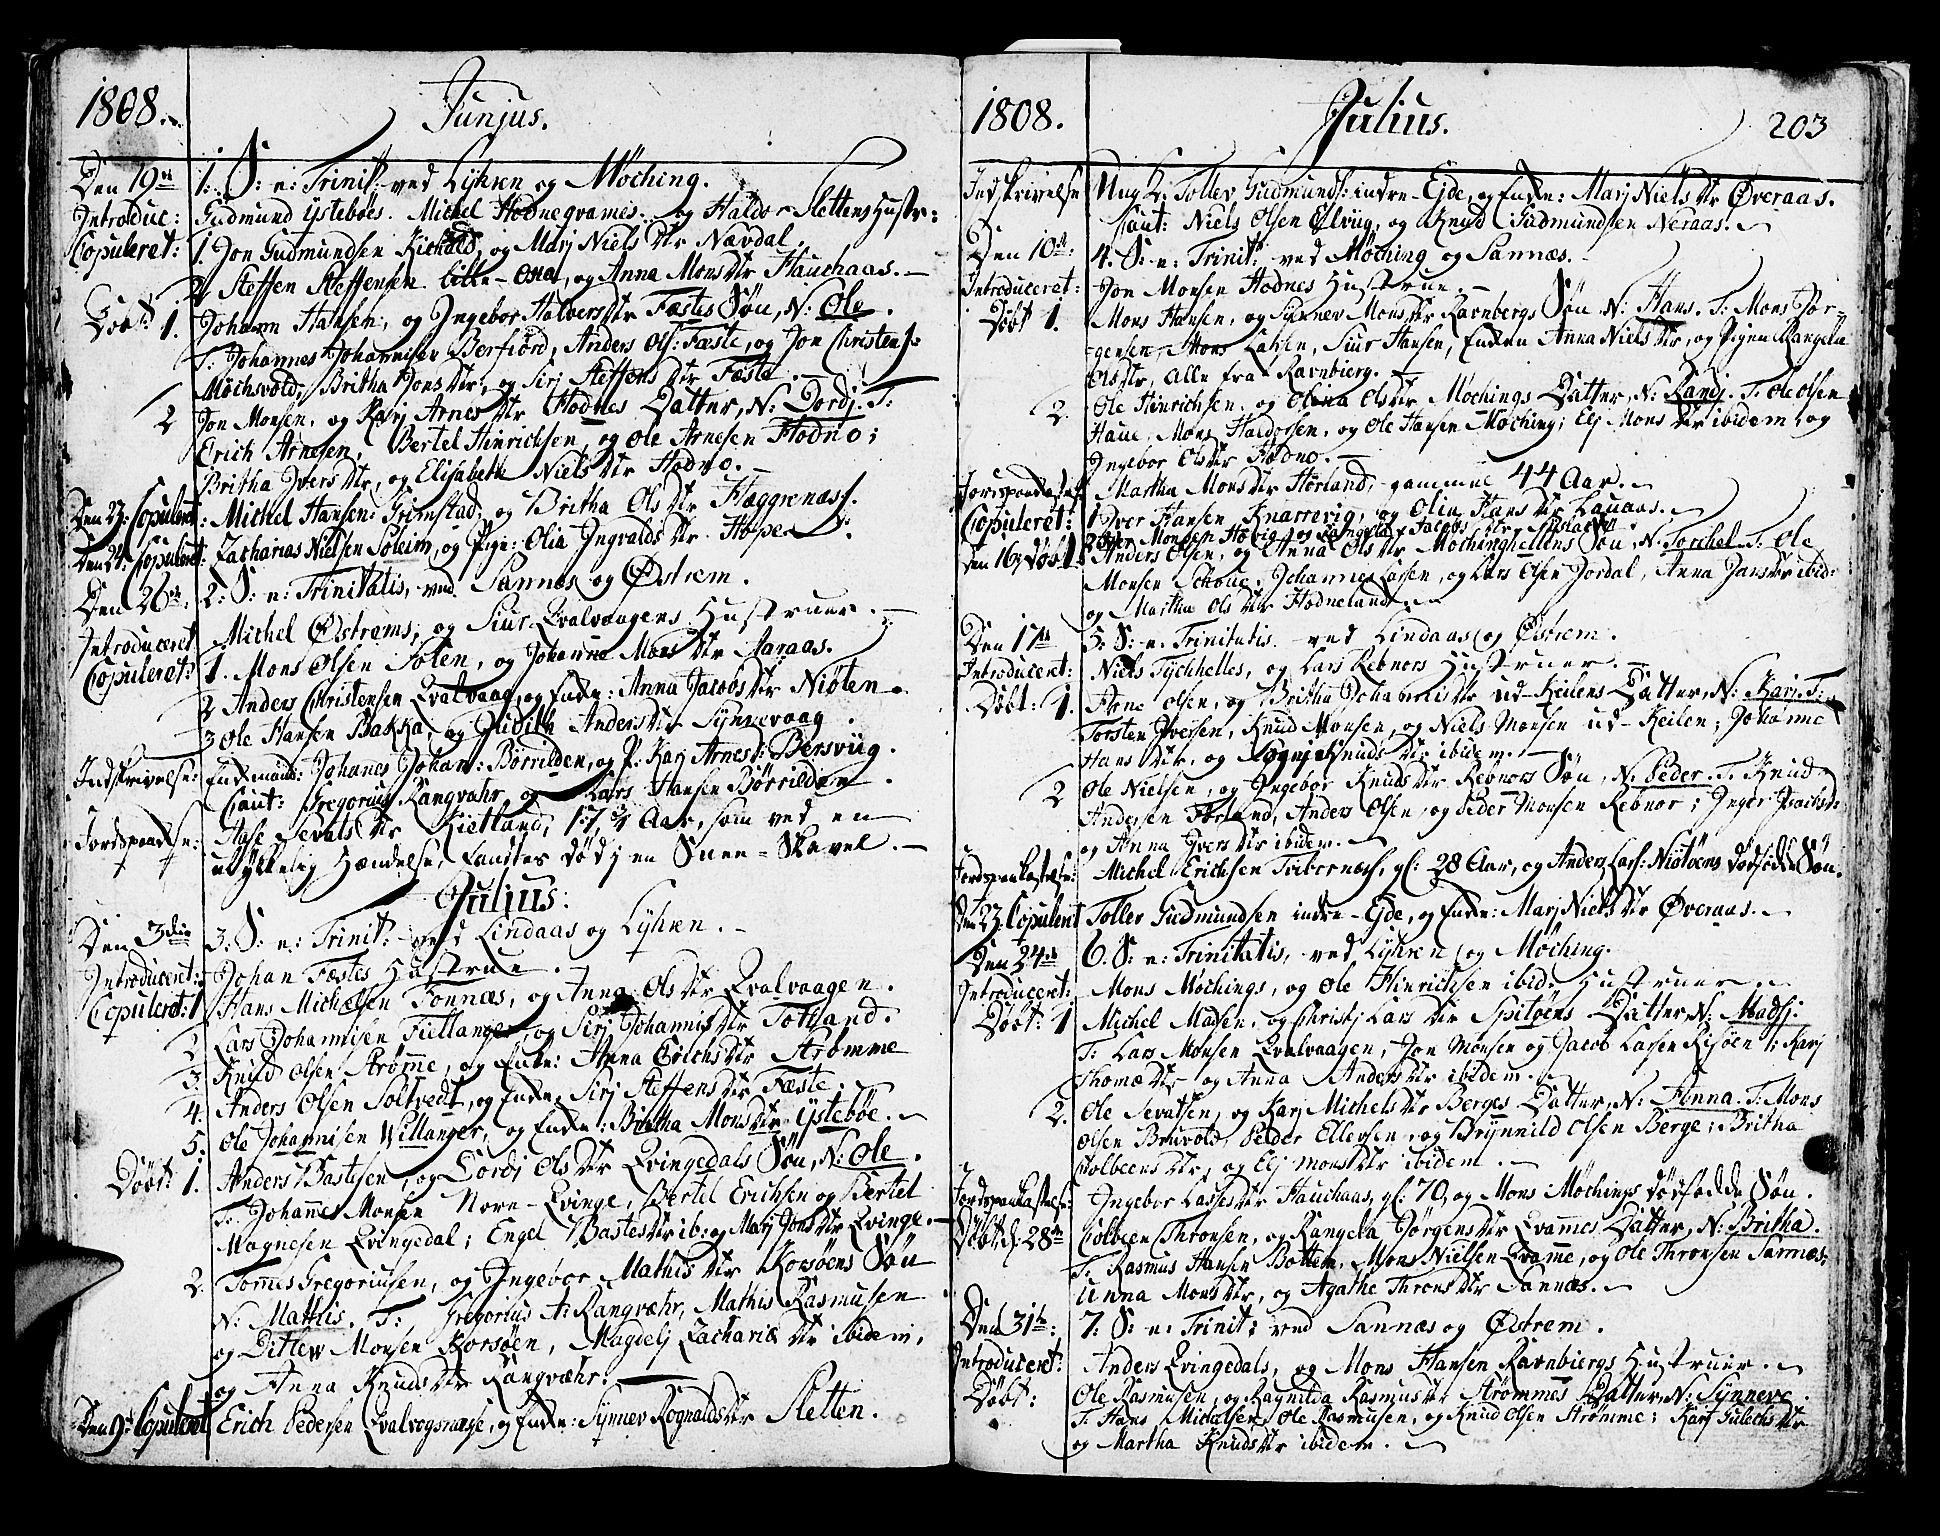 1808. Junjus.
Den 19de 1. S: e: Trinit: ved Lyhren og Møching.
Introduc: Gudmund ÿstebøes. Michel Hodnegvames. og Haldor Slettens Hustr:
Copuleret: 1. Jon Gudmundsen Kichold, og Marj Niels Dtr Nævdal.
2 Steffen Steffensen Lille-Ona, og Anna Mons Dtr Hauchaas.
Døbt: 1. Johann Hansen, og Ingebor Halvers Dtr Fæstes Søn, N: Ole.
T: Johannes Johannisen Berfiord, Anders Ols: Fæste, og Jon Christens:
Mochsvold, Britha Jons Dtr, og Sirj Steffens Dtr Fæste.
2 Jon Monsen, og Karj Arnes Dtr Hodnes Datter, N: Dordj. T:
Erich Arnesen, Bertel Hinrichsen, og Ole Arnesen Hodno;
Britha Ivers Dtr, og Elisabeth Niels Dtr Hodno.
Den 23: Copuleret: Michel Hansen Grimstad, og Britha Ols Dtr Hæggrenæss.
Den 24: Copuleret: Zacharias Nielsen Soleim, og Pige: Olia Ingvalds Dtr Hope.
Den 26de 2: S: e: Trinitatis, ved Sannæs og Østrem.
Introduceret Michel Østrems, og Siur Qvalvaagens Hustruer.
Copuleret: 1. Mons Olsen Solen, og Johanna Mons Dtr Aaraas.
2 Anders Christensen Qvalvaag, og Enke: Anna Jacobs Dtr Niøten.
3 Ole Hansen Bakka, og Gudith Anders Dtr Synnevaag.
Indskrivelse: Enkemand: Johanes Johan: Børrilden, og P. Karj Arnes D: Bersviig.
Caut: Gregorius Rangvahr og Lars Hansen Børrilden.
Jordspaadse: Aase Sevats Dtr Kietland, 17 3/4 Aar, som ved en
ulykkelig Hændelse, fandtes død j en Snee-Skavel.
Julius:
Den 3die 3: S: e: Trinit: ved Lindaas og Lyhren.
Introduceret: Johan Fæstes Hustrue.
Copuleret: 1 Hans Michelsen Fonnæs, og Anna Ols Dtr Qvalvaagen.
2 Lars Johannisen Fiellanger, og Sirj Johannis Dtr Totland.
3. Knud Olsen Strømme, og Enke: Anna Erichs Dtr Strømme
4. Anders Olsen Soltvedt, og Enke: Sirj Steffens Dtr Fæste.
5: Ole Johannisen Willanger, og Enke: Britha Mons Dtr ÿstebøe.
Døbt: 1. Anders Bastesen, og Dordj Ols Dtr Qvingedals Søn, N: Ole.
T: Johannes Monsen Nore-Qvinge, Bertel Erichsen og Bertel
Magnesen Qvingedal; Engel Bastes Dtr ib: og Marj Jons Dtr Qvinge.
2. Tornes Gregoriusen, og Ingebor Mathis Dtr Korsøens Søn
N: Mathis. T: Gregorius A: Rangvæhr, Mathis Rasmusen
og Ditlew Monsen Korsøen, Magdelj Zachariæ Dtr ibidem,
og Anna Knuds Dtr Rangvæhr.
Den 9: Copuleret Erich Pedersen Qvalvogsnæse, og Enke: Synnev Rognalds Dtr Sletten.
1808. Julius. 203
Indskrivelse Ung K: Tollev Gudmunds: indre Ejde, og Enke: Marj Niels Dtr Øveraas.
Caut: Niels Olsen Ølviig, og Knud Gudmundsen Neraas.
Den 10de: 4. S: e: Trinit: ved Møching og Sannæs.
Introduceret: Jon Monsen Hodnes Hustrue.
Døbt 1. Mons Hansen, og Synnev Mons Dtr Ravnbergs Søn, N: Hans. T: Mons Jør-
gensen, Mons Larsen, Siur Hansen, Enken Anna Niels Dtr, og Pigen Rangela
Ols Dtr, alle fra Ravnbierg.
2. Ole Hinrichsen, og Olina Ols Dtr Møchings Datter, N: Randj. T: Ole Olsen
Haue, Mons Haldorsen, og Ole Hansen Møching; Elj Mons Dtr ibidem, og
Ingebor Ols Dtr Hodno.
Martha Mons Dtr Hørland, gammel 44 Aar.
Copuleret: 1 Iver Hansen Knarrevig, og Olia Hans Dtr Lauaas.
Den 16 Døbt 1. Anders Olsen, og Anna Ols Dtr Møchinghellens Søn, N: Torchel. T: Ole
Monsen Schoue, Johannes Larsen, og Lars Olsen Jordal, Anna Jans Dtr ibid:
og Martha Ols Dtr Hodneland.
Den 17de 5: S: e: Trinitatis. ved Lindaas og Østrem.
Introduceret: Niels Tychhelles, og Lars Rebnors Hustruer.
Døbt: 1. Arne Olsen, og Britha Johannis Dtr ud-Keilens Datter, N: Karj. T:
Torsten Iversen, Knud Monsen, og Niels Monsen ud-Keilen; Johanne
Hans Dtr, og Knuds Dtr ibidem.
2 Ole Nielsen, og Ingebor Knuds Dtr Rebnors Søn, N: Peder. T: Knud
Andersen Førland, Anders Olsen, og Peder Monsen Rebnor; Inger
og Anna Ivers Dtr ibidem.
Michel Erichsen Tvibernæss, gl: 28 Aar, og Anders Lars: Niøtøens dødfødde Søn.
Den 23. Copuleret Tollev Gudmundsen indre-Ejde, og Enke: Marj Niels Dtr Øveraas.
Den 24de 6. S: e: Trinitatis, ved Lyhren og Møching.
Introduceret: Mons Møchings, og Ole Hinrichsen ibid: Hustruer.
Døbt: 1 Michel Madsen, og Christj Lars Dtr Spitøens Datter, N: Madsj.
T: Lars Monsen Qvalvaagen, Jon Monsen og Jacob Larsen Risøen; Karj
Thomæ Dtr og Anna Anders Dtr ibidem.
2. Ole Sevatsen, og Karj Michels Dtr Berges Datter, N: Anna. T: Mons
Olsen Bruvold, Peder Ellevsen, og Brynnild Olsen Berge; Britha
Colbeens Dtr, og Elj Mons Dtr ibidem.
Ingebor Lasses Dtr Hauchaas, gl: 70, og Mons Møchings dødfødde Søn.
Døbt d: 28de Colbeen Thronsen, og Rangela Jørgens Dtr Qvammes Datter, N: Britha.
T: Rasmus Hansen Botten, Mons Nielsen Qvamme, og Ole Thronsen Sannæs;
Unna Mons Dtr, og Agathe Throns Dtr Sannæs.
Den 31te: 7: S: e: Trinit: ved Sannæs og Østrem.
Introduceret: Anders Qvingedals, og Mons Hansen Ravnbiergs Hustruer.
Døbt: Ole Rasmusen, og Ragnilda Rasmus Dtr Strømmes Datter, N: Synneve.
T: Hans Michelsen, Ole Rasmusen, og Knud Olsen Strømme; Karj Gulachs Dtr
og Martha Knuds Dtr ibidem.